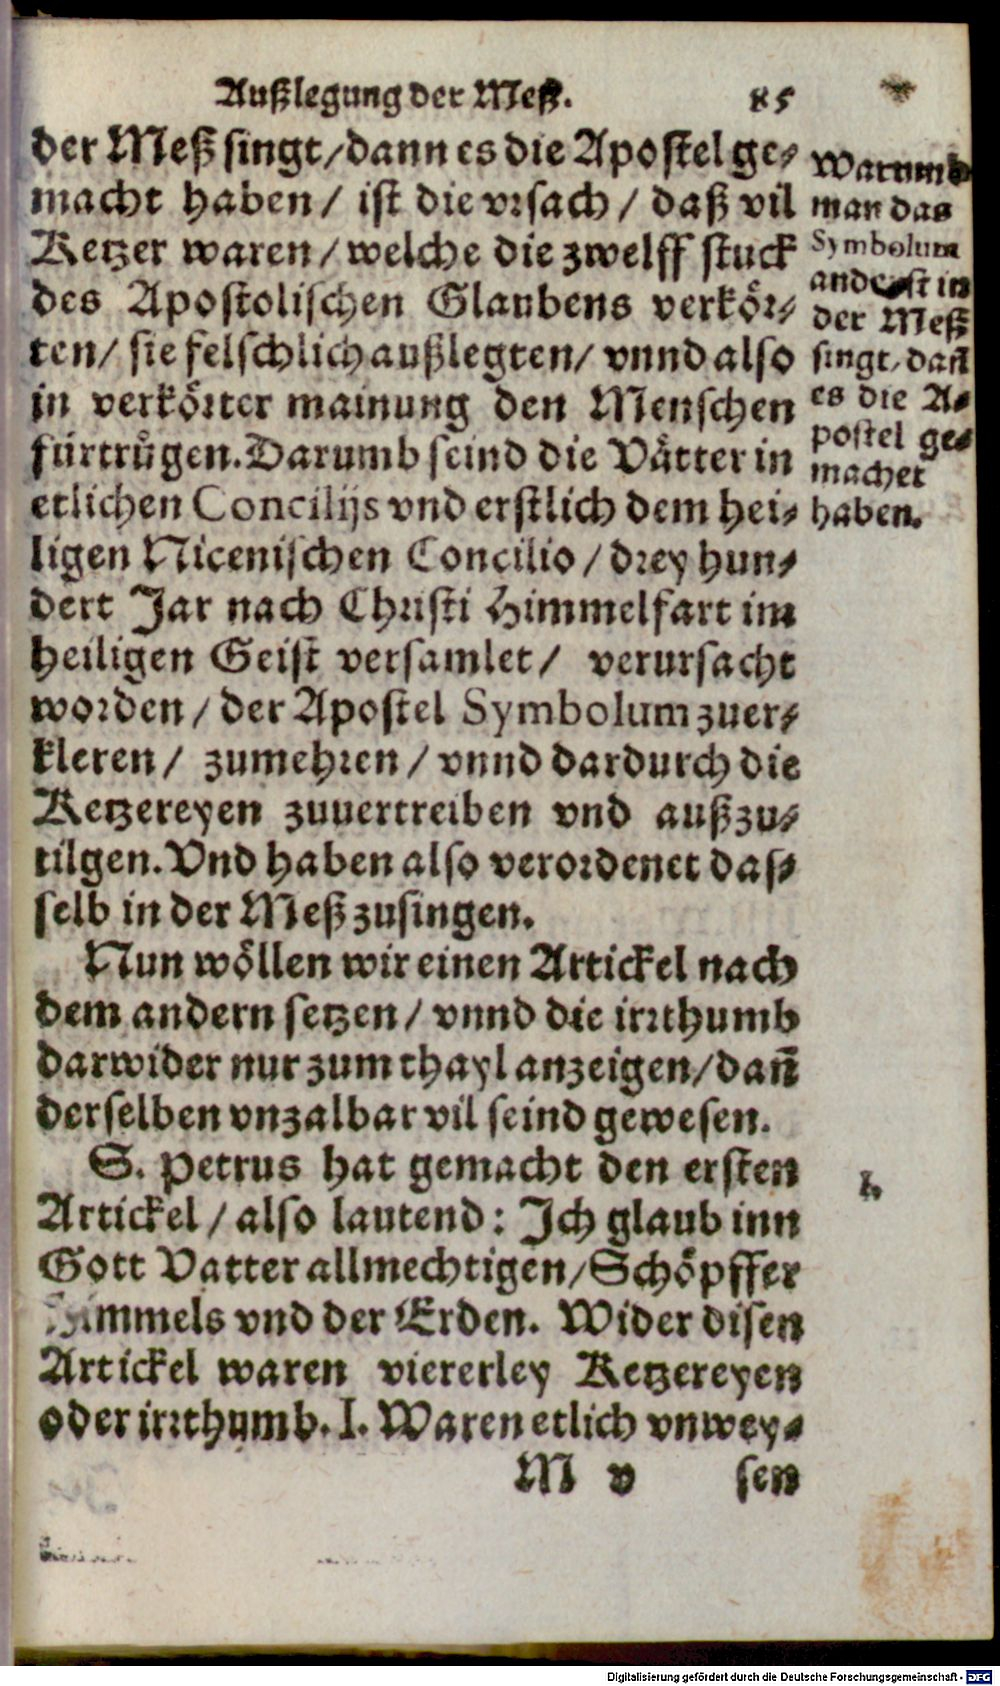 Außlegung der Meß. 85
der Meß singt/dann es die Apostel ge-
macht haben/ ist die vrsach/ daß vil
Ketzer waren/welche die zwelff stuck
des Apostolischen Glaubens verkör-
ten/ sie felschlich außlegten/ vnnd also
in verkörter mainung den Menschen
fürtrůgen. Darumb seind die Vätter in
etlichen Concilijs vnd erstlich dem hei-
ligen Nicenischen Concilio/drey hun-
dert Jar nach Christi Himmelfart im
heiligen Geist versamlet/ verursacht
worden/der Apostel Symbolum zuer-
kleren/ zumehren/vnnd dardurch die
Ketzereyen zuuertreiben vnd außzu-
tilgen. Vnd haben also verordenet das-
selb in der Meß zusingen.
Nun wöllen wir einen Artickel nach
dem andern setzen/ vnnd die irrthumb
darwider nur zum thayl anzeigen/dañ
derselben vnzalbar vil seind gewesen.
S. Petrus hat gemacht den ersten
Artickel/also lautend: Ich glaub inn
Gott Vatter allmechtigen/Schöpffer
Himmels vnd der Erden. Wider disen
Artickel waren viererley Ketzereyen
oder irrthumb. I. Waren etlich vnwey-
M v sen
Warumb
man das
Symbolum
anderst in
der Meß
singt, dañ
es die A-
postel ge-
machet
haben.
I.
Digitalisierung gefördert durch die Deutsche Forschungsgemeinschaft - DFG